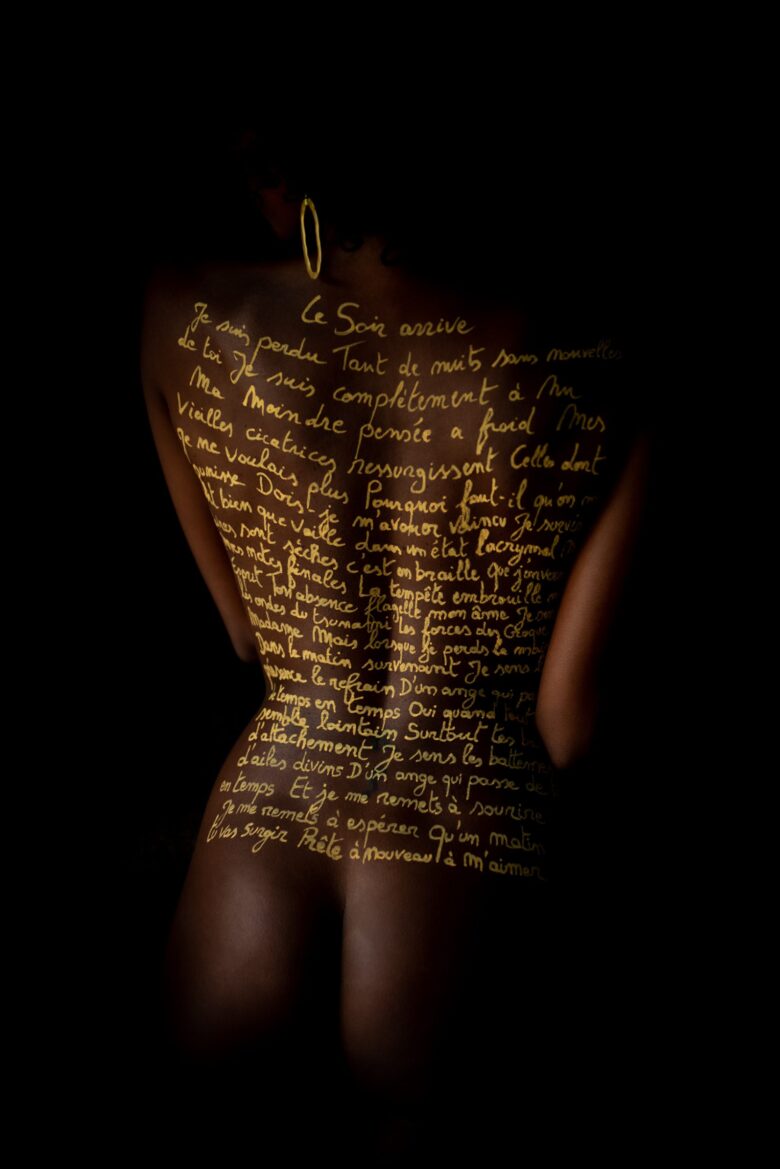 Le Soir arrive
Je suis perdu Tant de nuits sans nouvelles
de toi Je suis complètement à Nu
Ma Moindre pensée a froid Mes
Vieilles cicatrices ressurgissent Celles dont
je me voulais plus Pourquoi faut-il qu'on m
oumisse Dois-je m'avouer vaincu Je survis
t bien que vaille dans un état lacrymal
mes sont sèches c'est en braille que j'envo
mes notes finales La tempête embrouille m
esprit Ton absence flagelle mon âme Je su
les ondes du tsunami les forces des
Madame Mais lorsque je perds le
Dans le matin survenant Je sens
le refrain D'un ange qui pa
de temps en temps Oui quand tout
semble lointain Surtout tes
d'attachement Je sens les batteme
d'ailes divins D'un ange qui passe de
en temps Et je me remets à sourire
Je me remets à espérer Qu'un matin
tu vas surgir Prête à nouveau à M'aimer